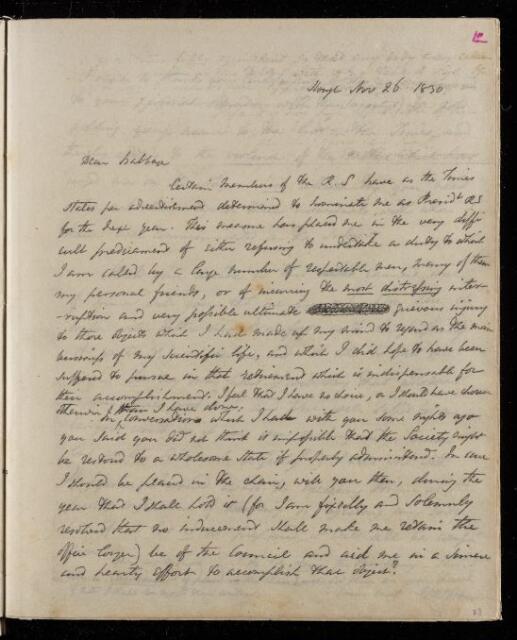 Slough Nov 26 1830
Dear Babbage
Certain Members of the R.S have as the Times
States per advertisement determined to nominate me as Presidt RS
for the next year. This measure has placed me in the very diffi
cult predicament of either refusing to undertake a duty to which
I am called by a large number of respectable men, many of them
my personal friends, or of incurring the most distressing inter-
-ruption and very possible ultimate grievous injury
to those objects which I had made up my mind to regard as the main
business of my Scientific life, and which I did hope to have been
suffered to pursue in that retirement which is indispensable for
their accomplishment. I feel that I have no choice, or I should have chosen
otherwise than I have done.
In conversation which I had with you some nights ago
you said you did not think it impossible that the Society might
be restored to a wholesome state if properly administered. In case
I should be placed in the chair, will you then, during the
year that I shall hold it (for I am fixedly and solemnly
resolved that no inducement shall make me retain the
office longer) be of the Council and aid me in a sincere
and hearty effort to accomplish that object?